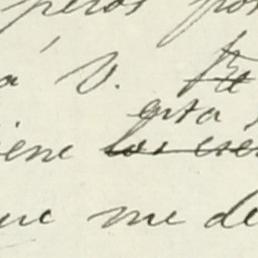 pesos por
á V.
esta
iene los ese
que me de